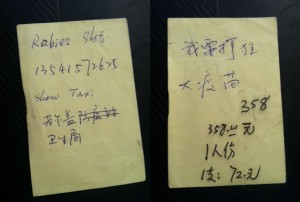 Rabies Shot
13541572625
Show Taxi:
若尔盖防疫站
卫生局
我要打狂
犬疫苗
358
358.00元
1人份
1支: 72元